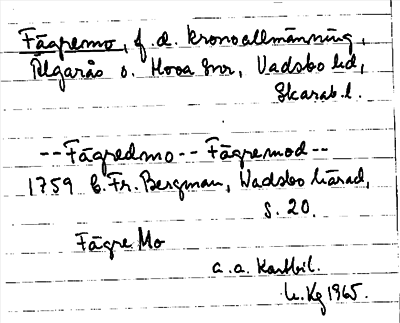 Fägremo, f. d. kronoallmänning,
Älgarås o. Hova snr, Vadsbo hd,
Skarab. l.
--Fägredmo -- Fägremod --
1759 C. Fr. Bergman, Wadsbo härad,
s. 20.
Fägre Mo
a. a. Kartbil.
Kg 1965.